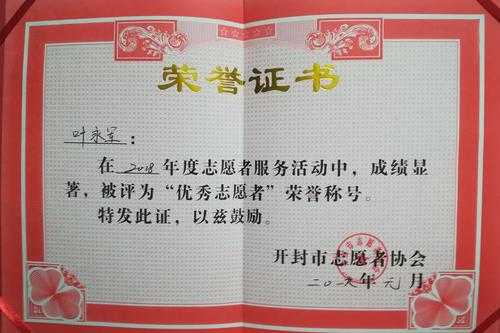 荣誉证书
叶永军：
在 2018 年度志愿者服务活动中，成绩显
著，被评为“优秀志愿者”荣誉称号。
特发此证，以兹鼓励。
开封市志愿者协会
二〇一九年元月